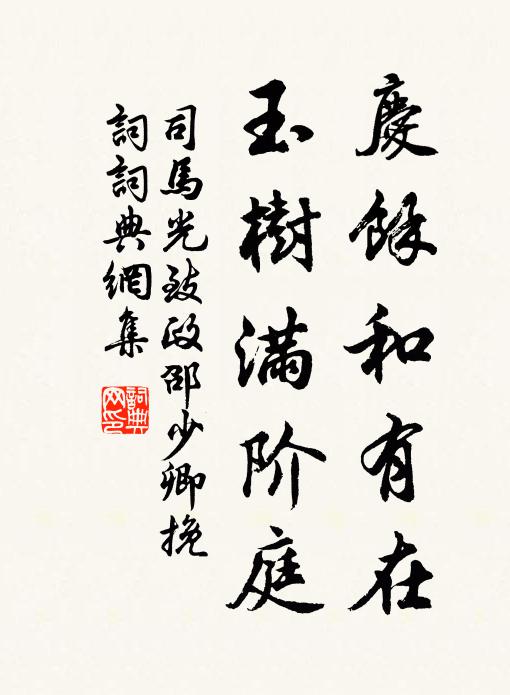 慶餘和有在
玉樹滿阶庭
司馬光致政邵少卿挽
詞詞典網集
詞典网印